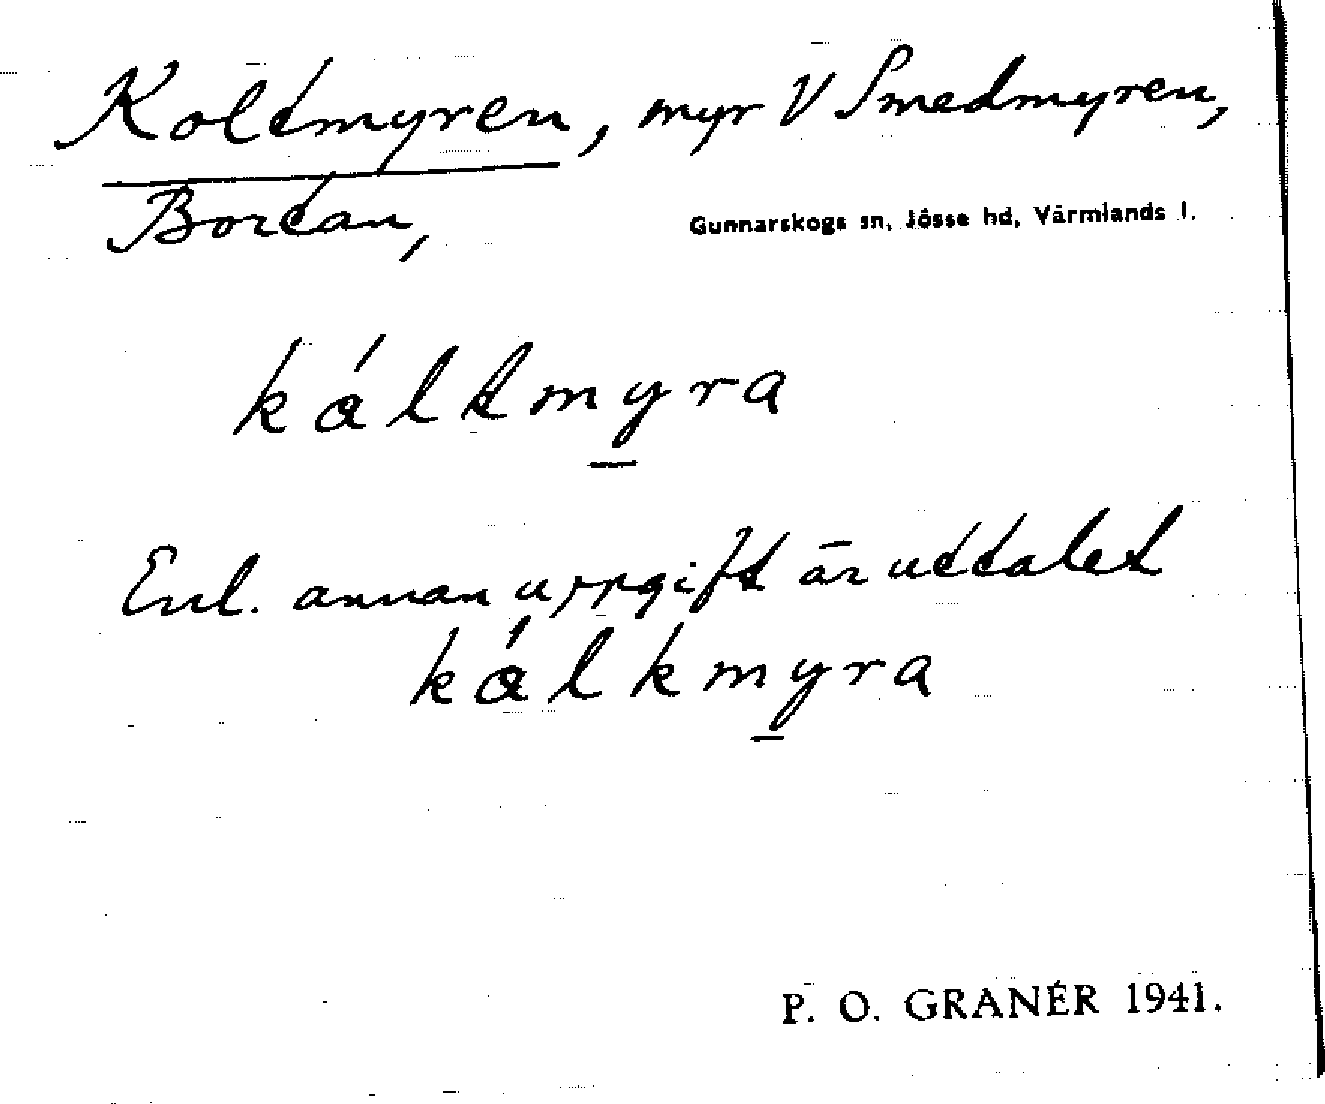 Koltmyren, myr V Smedmyren,
Bortan,
Gunnarskogs sn, Jösse hd, Värmlands l.
kåltmyra
Enl. annan uppgift är uttalet
kålkmyra
P. O. GRANÉR 1941.